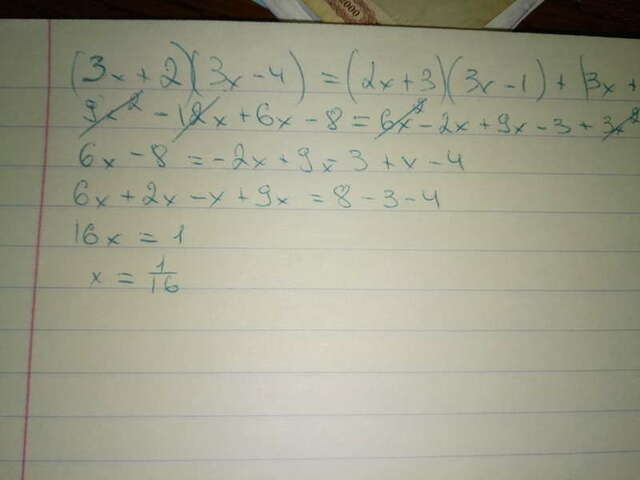 (3x+2)(3x-4) = (2x+3)(3x-1) + (3x+
9x² - 12x + 6x - 8 = 6x² - 2x + 9x - 3 + 3x²
6x - 8 = -2x + 9x = 3 + x - 4
6x + 2x - x + 9x = 8 - 3 - 4
16x = 1
x = 1/16